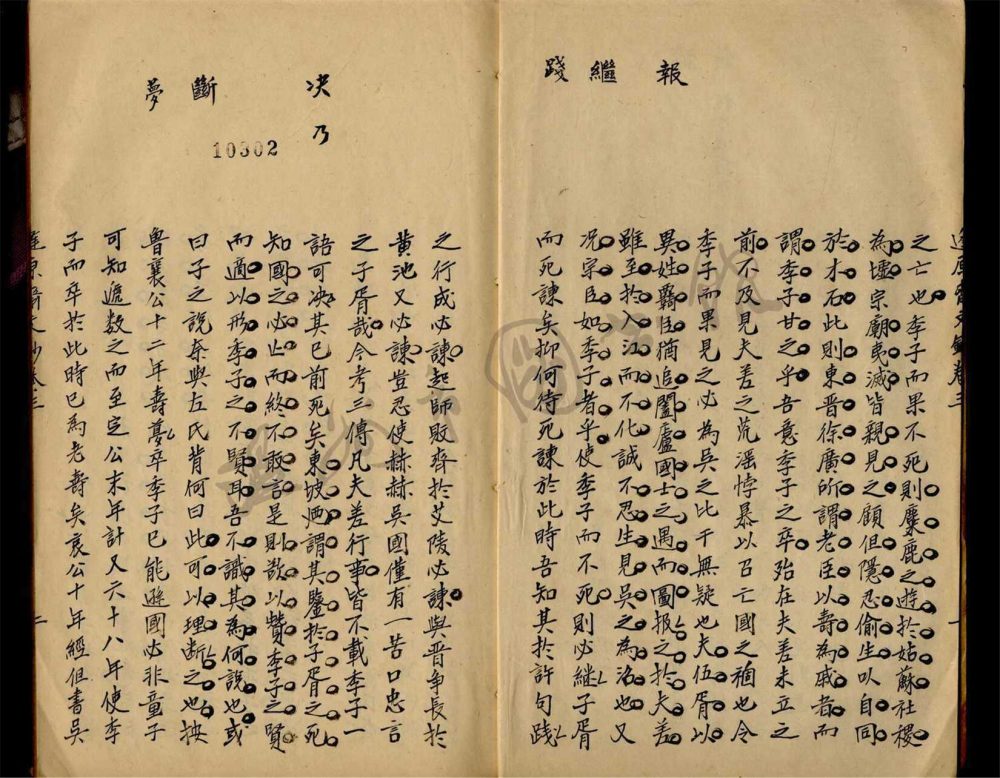 報
繼
踐
原齋文鈔卷三 一
之亡也季子而果不死則麋鹿之遊於姑蘇社稷
為墟宗廟夷滅皆親見之顧但隱忍偷生以自同
於木石此則東晉徐廣所謂老臣以壽為戚者而
謂季子甘之乎吾意季子之卒殆在夫差未立之
前不及見夫差之荒淫悖暴以召亡國之禍也令
季子而果見之必為吳之比干無疑也夫伍胥以
異姓羈臣猶追闔廬國士之遇而圖报之於夫差
雖至於入江而不化誠不忍生見吳之為沼也又
况宗臣如季子者乎使季子而不死則必继子胥
而死諫矣抑何待死諫於此時吾知其於許句踐
决
乃
斷
夢
10302
之行成必諫起師敗齊於艾陵必諫與晋爭長於
黄池又必諫豈忍使赫赫吳國僅有一苦口忠言
之子胥哉今考三傳凡夫差行事皆不載季子一
語可决其已前死矣東坡廼謂其鑒於子胥之死
知國之必亡而終不敢言是則欲以贊季子之賢
而適以形季子之不賢耳吾不識其為何說也或
曰子之說奈與左氏背何曰此可以理斷之也按
魯襄公十二年壽夢卒季子已能遜國必非童子
可知遞数之而至定公末年計又六十八年使季
子而卒於此時已為老壽矣哀公十年經但書吳
原齋文鈔卷三 二